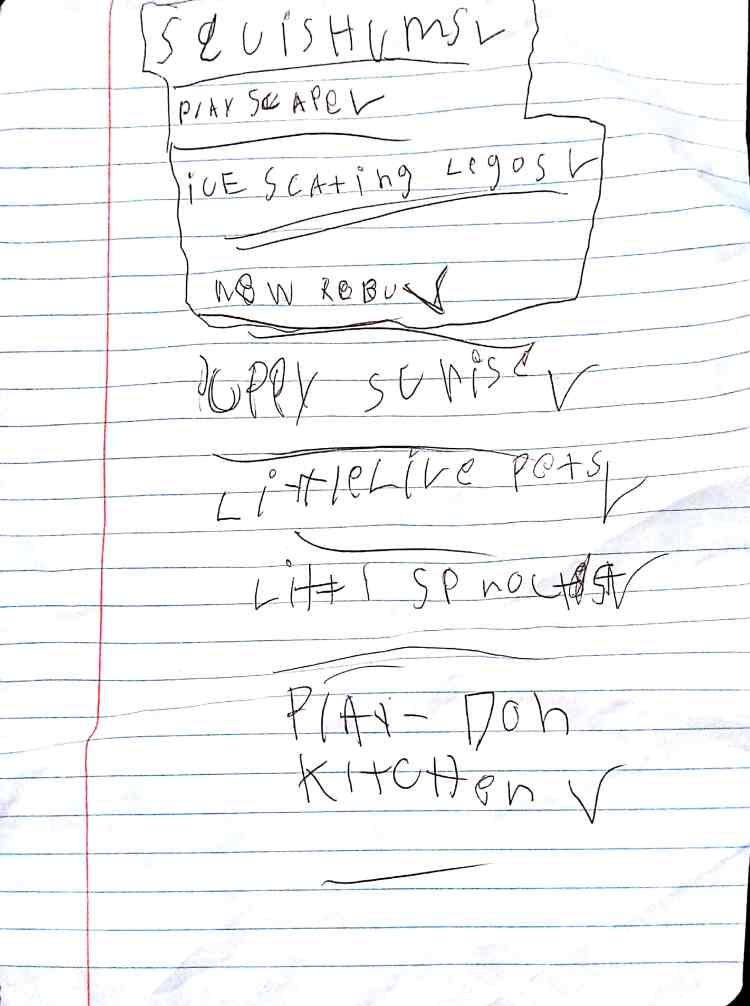 SQUISHUMS✓
PlAY SCAPe✓
iCE SCAting Legos✓
New RoBu✓
PUPPY SUNiSe✓
LittleLive Pets✓
Litt l SPROUtst✓
PlAY-Doh
KitCHen✓